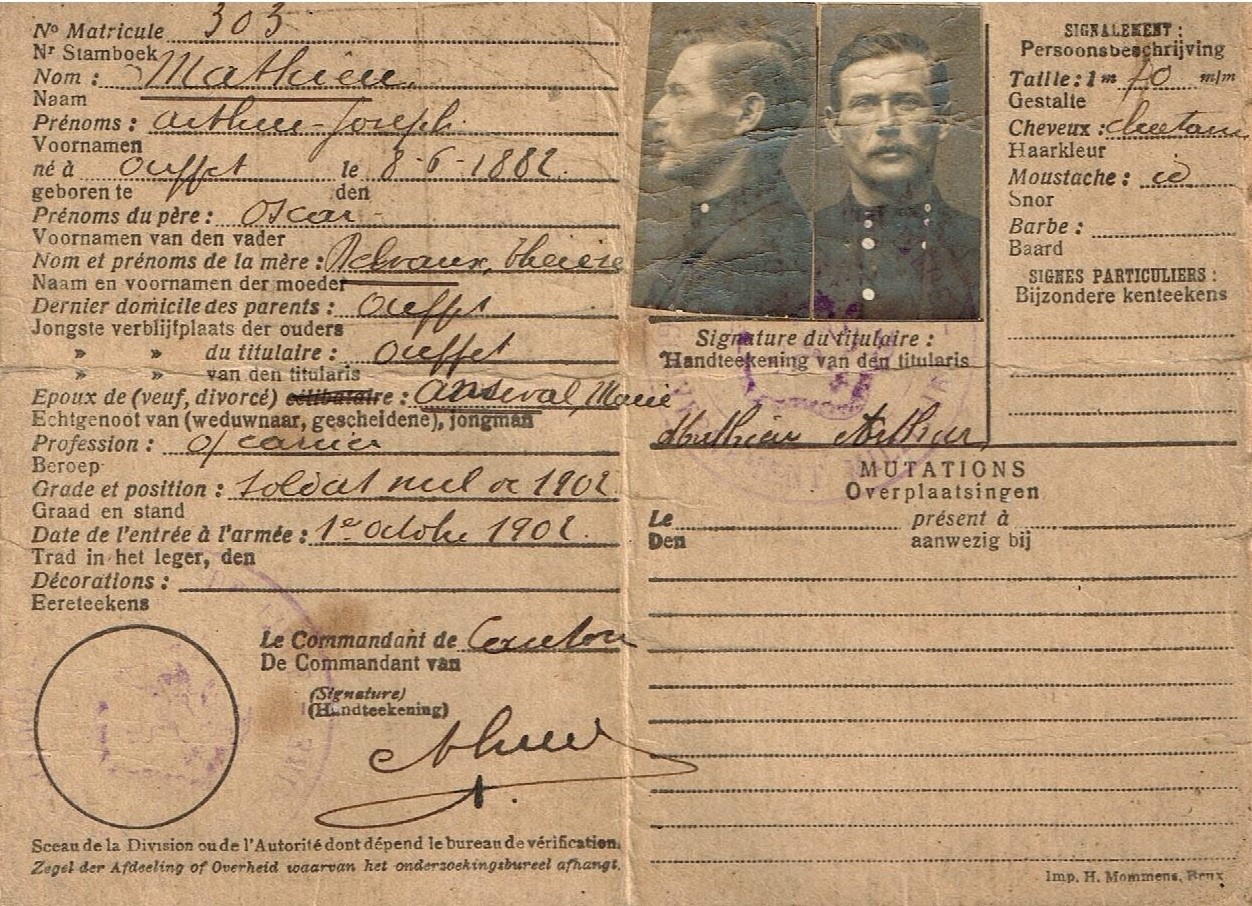 Nº Matricule 303
Nr Stamboek
Nom : Mathieu
Naam
Prénoms : Arthur-Joseph
Voornamen
né à Ouffet le 8-6-1882
geboren te den
Prénoms du père : Oscar
Voornamen van den vader
Nom et prénoms de la mère : Delvaux, Thérèse
Naam en voornamen der moeder
Dernier domicile des parents : Ouffet
Jongste verblijfplaats der ouders
» » du titulaire : Ouffet
» » van den titularis
Epoux de (veuf, divorcé) célibataire : Anseval, Marie
Echtgenoot van (weduwnaar, gescheidene), jongman
Profession :
Beroep
Grade et position : Soldat mil de 1902
Graad en stand
Date de l'entrée à l'armée : 1er octobre 1902.
Trad in het leger, den
Décorations :
Eereteekens
Le Commandant de
De Commandant van
(Signature)
(Handteekening)
Sceau de la Division ou de l'Autorité dont dépend le bureau de vérification.
Zegel der Afdeeling of Overheid waarvan het onderzoekingsbureel afhangt.
Signature du titulaire :
Handteekening van den titularis
Mathieu Arthur
SIGNALEMENT :
Persoonsbeschrijving
Taille : 1m 70 m/m
Gestalte
Cheveux : chatains
Haarkleur
Moustache : id
Snor
Barbe :
Baard
SIGNES PARTICULIERS :
Bijzondere kenteekens
MUTATIONS
Overplaatsingen
Le présent à
Den aanwezig bij
Imp. H. Mommens, Brux